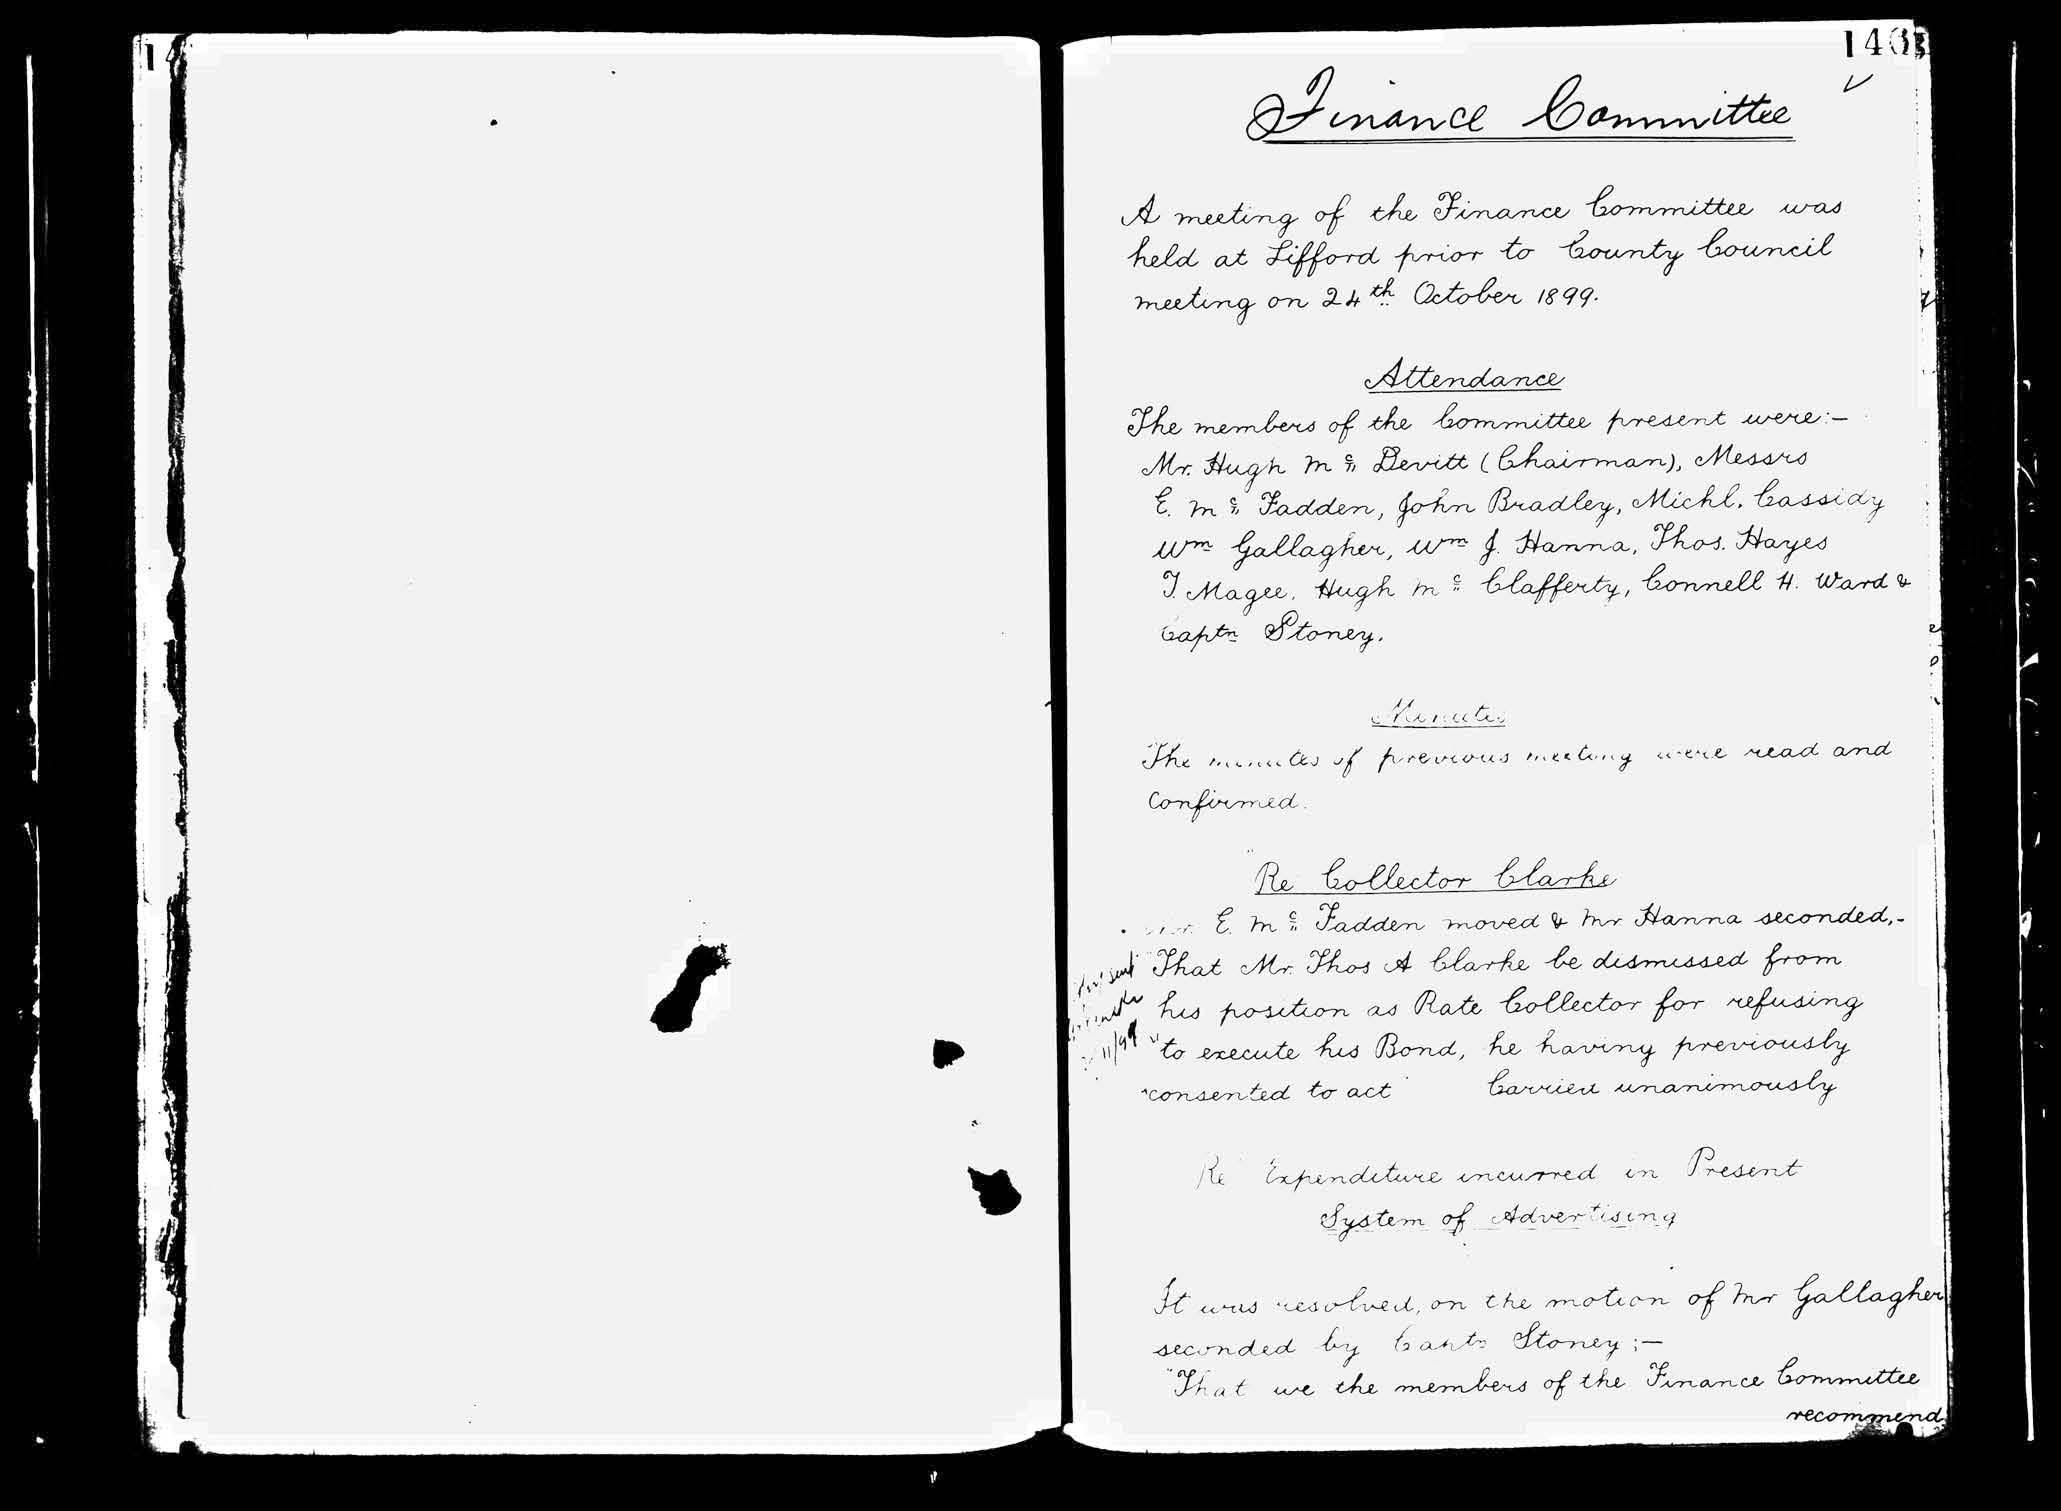 14
140
Finance Committee
A meeting of the Finance Committee was
held at Lifford prior to County Council
meeting on 24th October 1899.
Attendance
The members of the Committee present were:-
Mr. Hugh Mc Devitt (Chairman), Messrs
E. Mc Fadden, John Bradley, Michl. Cassidy
Wm Gallagher, Wm J. Hanna, Thos. Hayes
T. Magee. Hugh Mc Clafferty, Connell H. Ward &
Captn Stoney.
Minutes
The minutes of previous meeting were read and
confirmed.
Re Collector Clarke
Mr. E. Mc Fadden moved & Mr Hanna seconded,-
"That Mr. Thos A Clarke be dismissed from
his position as Rate Collector for refusing
"to execute his Bond, he having previously
"consented to act" Carried unanimously
sent
11/99
Re Expenditure incurred in Present
System of Advertising
It was resolved, on the motion of Mr Gallagher
seconded by Captn Stoney;-
"That we the members of the Finance Committee
recommend